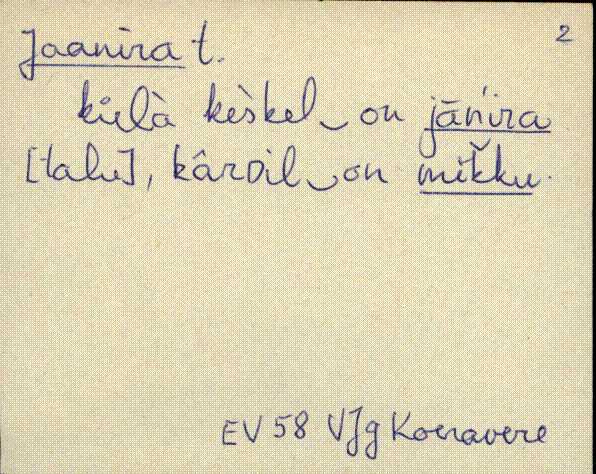 2
Jaanira t.
külà kèskel‿on jāńira
[talu], kârDil‿on mikku.
EV 58 VJg Koeravere